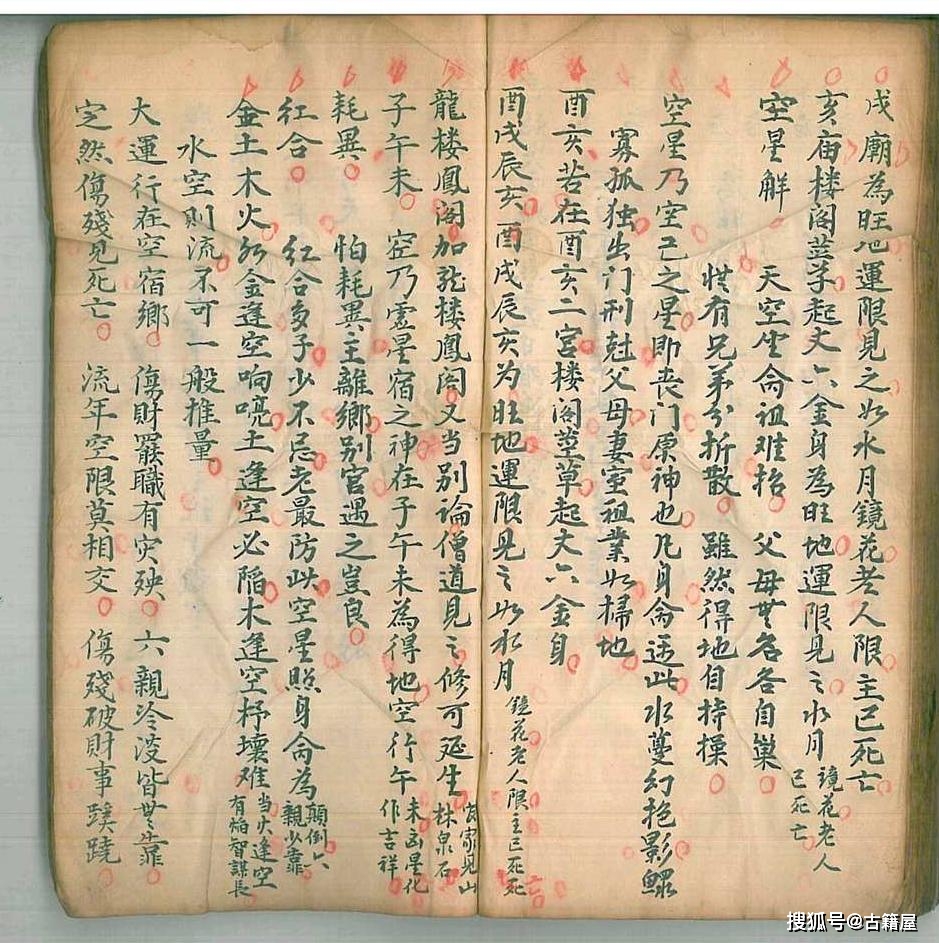 戌廟為旺地運限見之如水月鏡花老人限主已死亡
亥庙楼阁並孛起丈六金身為旺地運限見之水月鏡花老人已死亡
空星解　天空坐命祖难招　父母無名各自巢
惧有兄弟分折散　雖然得地自持操
空星乃空亡之星即丧门原神也凡身命逢此水夢幻抱影鰥
寡孤独出门刑尅父母妻室祖業如掃地
酉亥若在酉亥二宮楼阁並草起丈六金身
酉戌辰亥酉戌辰亥为旺地運限見之如水月鏡花老人限主已死死亡
龍楼鳳阁加龙楼鳳阁又当别論僧道見之修可延生官家見山林泉石
子午未　空乃虚星宿之神在子午未為得地空行午未凶星化作吉祥
耗異　怕耗異主離鄉别官遇之豈良
红合　红合多子少不忌老最防此空星照身命為顛倒六親少靠
金土木火水金逢空响喨土逢空必陷木逢空杇壞难当火逢空有焰智謀長
水空则流不可一般推量
大運行在空宿鄉　傷財罷職有灾殃　六親冷淡皆無靠
定然傷殘見死亡　流年空限莫相交　傷殘破財事蹊蹺
搜狐号@古籍屋